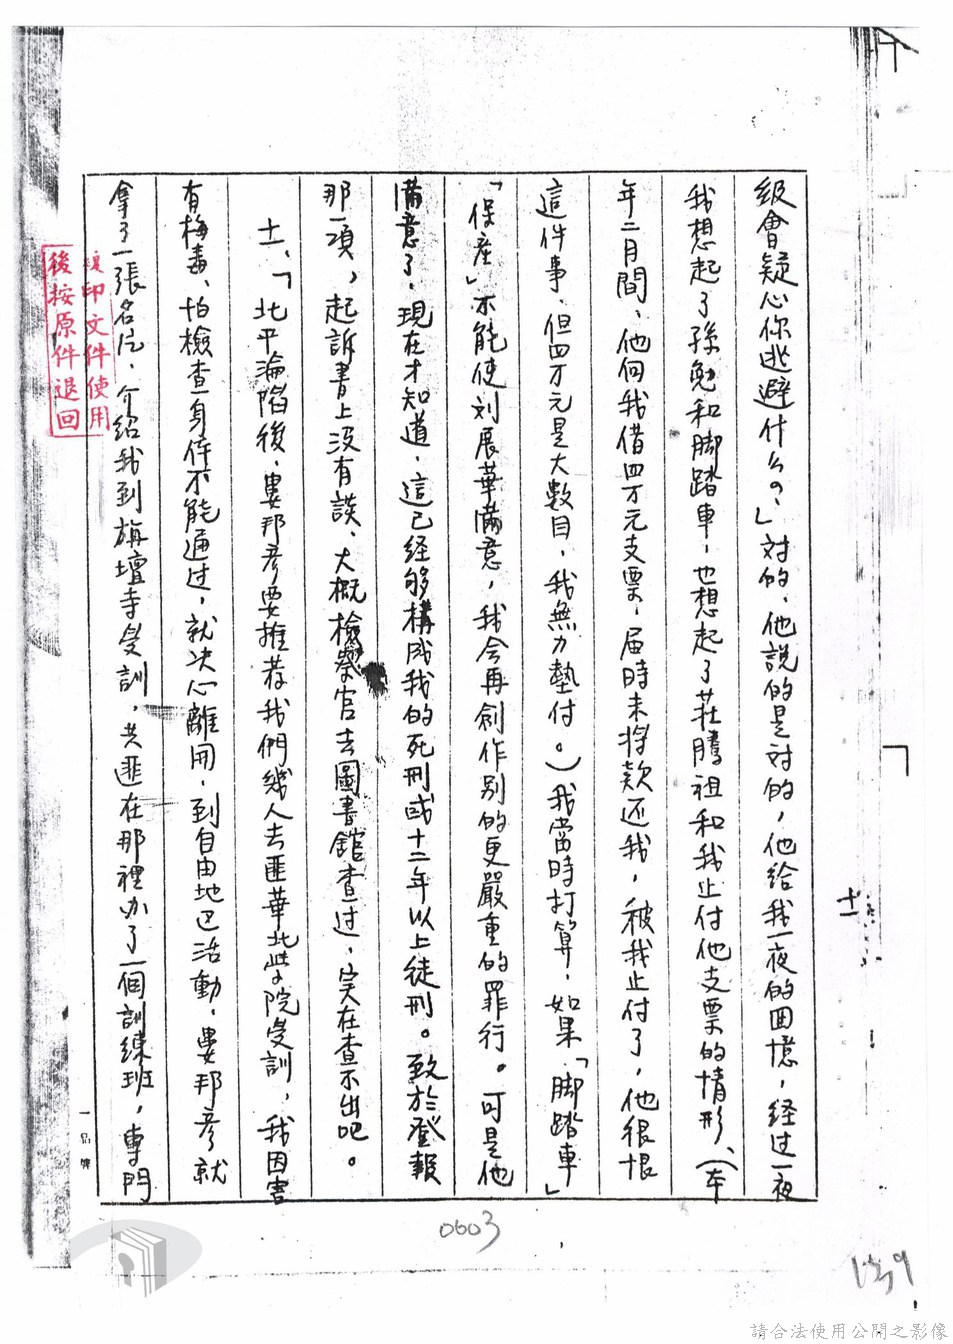 級會疑心你逃避什么？」対的、他説的是対的，他给我一夜的囬憶，経过一夜
我想起了孫勉和脚踏車，也想起了莊騰祖和我止付他支票的情形、（本
年二月間、他向我借四万元支票，届時未将款还我，被我止付了，他很恨
這件事、但四万元是大数目，我無力墊付。）我當時打算，如果「脚踏車」
「保産」不能使刘展華滿意，我会再創作别的更嚴重的罪行。可是他
滿意了，現在才知道，這已経够構成我的死刑或十二年以上徒刑。致於登報
那一項，起訴書上没有談、大概檢察官去圖書館查过，实在查不出吧。
十一、「北平淪陷後，婁邦彦要推荐我們幾人去匪華北学院受訓，我因害
有梅毒、怕檢查身体不能通过，就决心離開，到自由地区活動，婁邦彦就
拿了一張名片，介绍我到旃壇寺受訓，共匪在那裡办了一個訓練班，專門
十一
複印文件使用
後按原件退回
一品牌
0603
139
請合法使用公開之影像